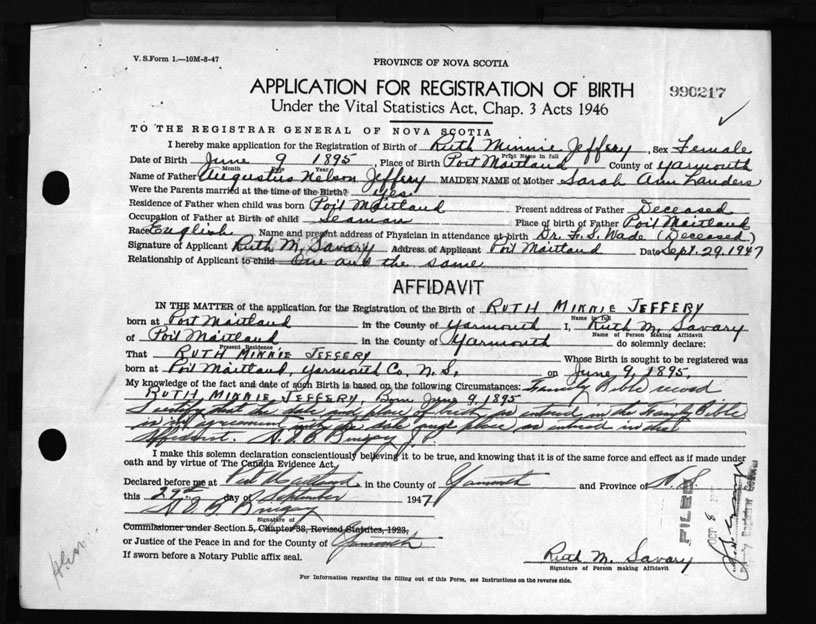 V. S. Form 1.—10M-8-47
PROVINCE OF NOVA SCOTIA
APPLICATION FOR REGISTRATION OF BIRTH
990217
Under the Vital Statistics Act, Chap. 3 Acts 1946
TO THE REGISTRAR GENERAL OF NOVA SCOTIA
I hereby make application for the Registration of Birth of Ruth Minnie Jeffery, Sex Female
Print Name in full
Date of Birth June 9 1895, Place of Birth Port Maitland County of Yarmouth
Month Date Year
Name of Father Augustus Nelson Jeffery MAIDEN NAME of Mother Sarah Ann Landers
Were the Parents married at the time of the Birth? Yes
Residence of Father when child was born Port Maitland Present address of Father Deceased
Occupation of Father at Birth of child Seaman Place of birth of Father Port Maitland
Race English Name and present address of Physician in attendance at birth Dr. F. S. Wade (Deceased)
Signature of Applicant Ruth M. Savary Address of Applicant Port Maitland Date Sept. 29. 1947
Relationship of Applicant to child One and the same
AFFIDAVIT
IN THE MATTER of the application for the Registration of the Birth of RUTH MINNIE JEFFERY
Name in full
born at Port Maitland in the County of Yarmouth I, Ruth M. Savary
Name of Person Making Affidavit
of Port Maitland in the County of Yarmouth do solemnly declare:
Present Residence
That RUTH MINNIE JEFFERY Whose Birth is sought to be registered was
born at Port Maitland, Yarmouth Co, N. S. on June 9, 1895.
My knowledge of the fact and date of such Birth is based on the following Circumstances: Family Bible record
RUTH MINNIE JEFFERY, Born June 9, 1895
I certify that the date and place of birth as entered in the Family Bible
is in agreement with the date and place as entered in this
Affidavit. J.P.
I make this solemn declaration conscientiously believing it to be true, and knowing that it is of the same force and effect as if made under
oath and by virtue of The Canada Evidence Act.
Declared before me at Port Maitland in the County of Yarmouth and Province of N. S.
this 29th day of September 1947
Signature of
Commissioner under Section 5, Chapter 38, Revised Statutes, 1923,
or to Justice of the Peace in and for the County of Yarmouth
If sworn before a Notary Public affix seal.
Ruth M. Savary
Signature of Person making Affidavit
For Information regarding the filling out of this Form, see Instructions on the reverse side.
FILED
OCT 8